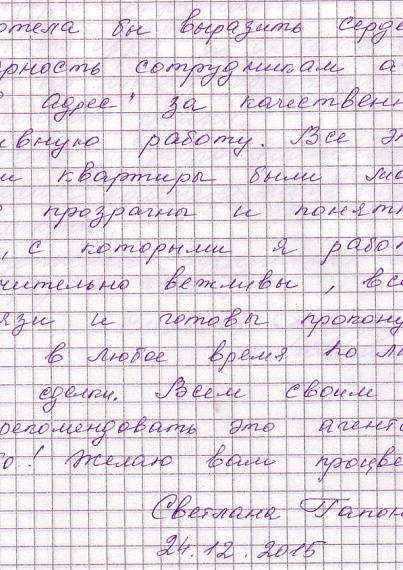 отела бы выразить серде
рность сотрудникам а
адрес" за качествен
ивную работу. Все э
и квартиры были
прозрачны и понятн
, с которыми я работ
чительно вежливы, все
язи и готовы проконсу
в любое время по
сделки. Всем своим
рекомендовать это агентс
о! Желаю вам процве
Светлана Гапон
24.12.2015